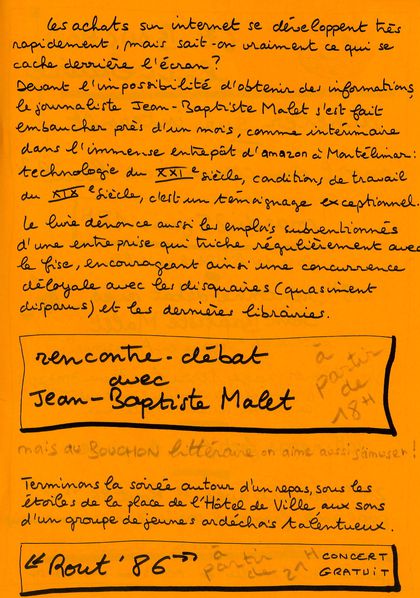 Les achats sur internet se développent très
rapidement, mais sait-on vraiment ce qui se
cache derrière l'écran ?
Devant l'impossibilité d'obtenir des informations,
le journaliste Jean-Baptiste Malet s'est fait
embaucher près d'un mois, comme intérimaire
dans l'immense entrepôt d'amazon à Montélimar :
technologie du XXIe siècle, conditions de travail
du XIXe siècle, c'est un témoignage exceptionnel.
Le livre dénonce aussi les emplois subventionnés
d'une entreprise qui triche régulièrement avec
le fisc, encourageant ainsi une concurrence
déloyale avec les disquaires (quasiment
disparus) et les dernières librairies.
rencontre-débat
avec
Jean-Baptiste Malet
à
partir
de
18H
mais au BOUCHON littéraire on aime aussi s'amuser !
Terminons la soirée autour d'un repas, sous les
étoiles de la place de l'Hôtel de Ville, aux sons
d'un groupe de jeunes ardéchois talentueux.
"Rout' 86"
à
partir
de 21H
CONCERT
GRATUIT